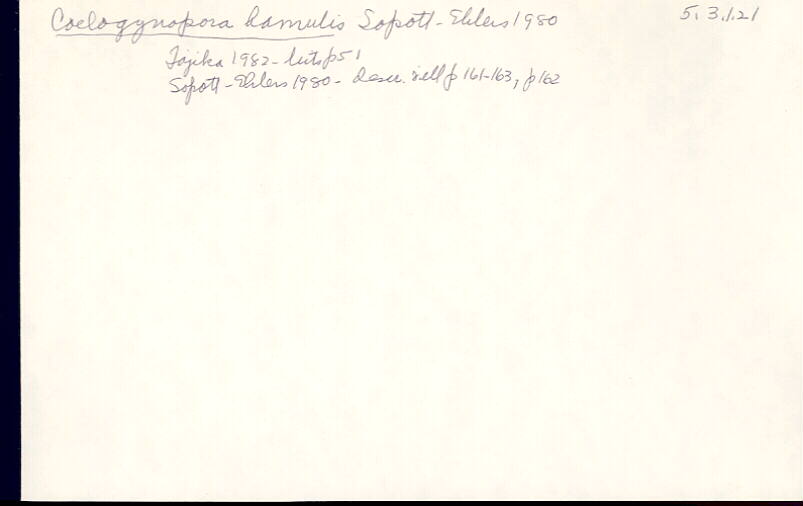 Coelogynopora hamulis Sopott-Ehlers 1980 5.3.1.21
Tajika 1982 - lists p 51
Sopott-Ehlers 1980 - descr. ill p 161-163, p 162